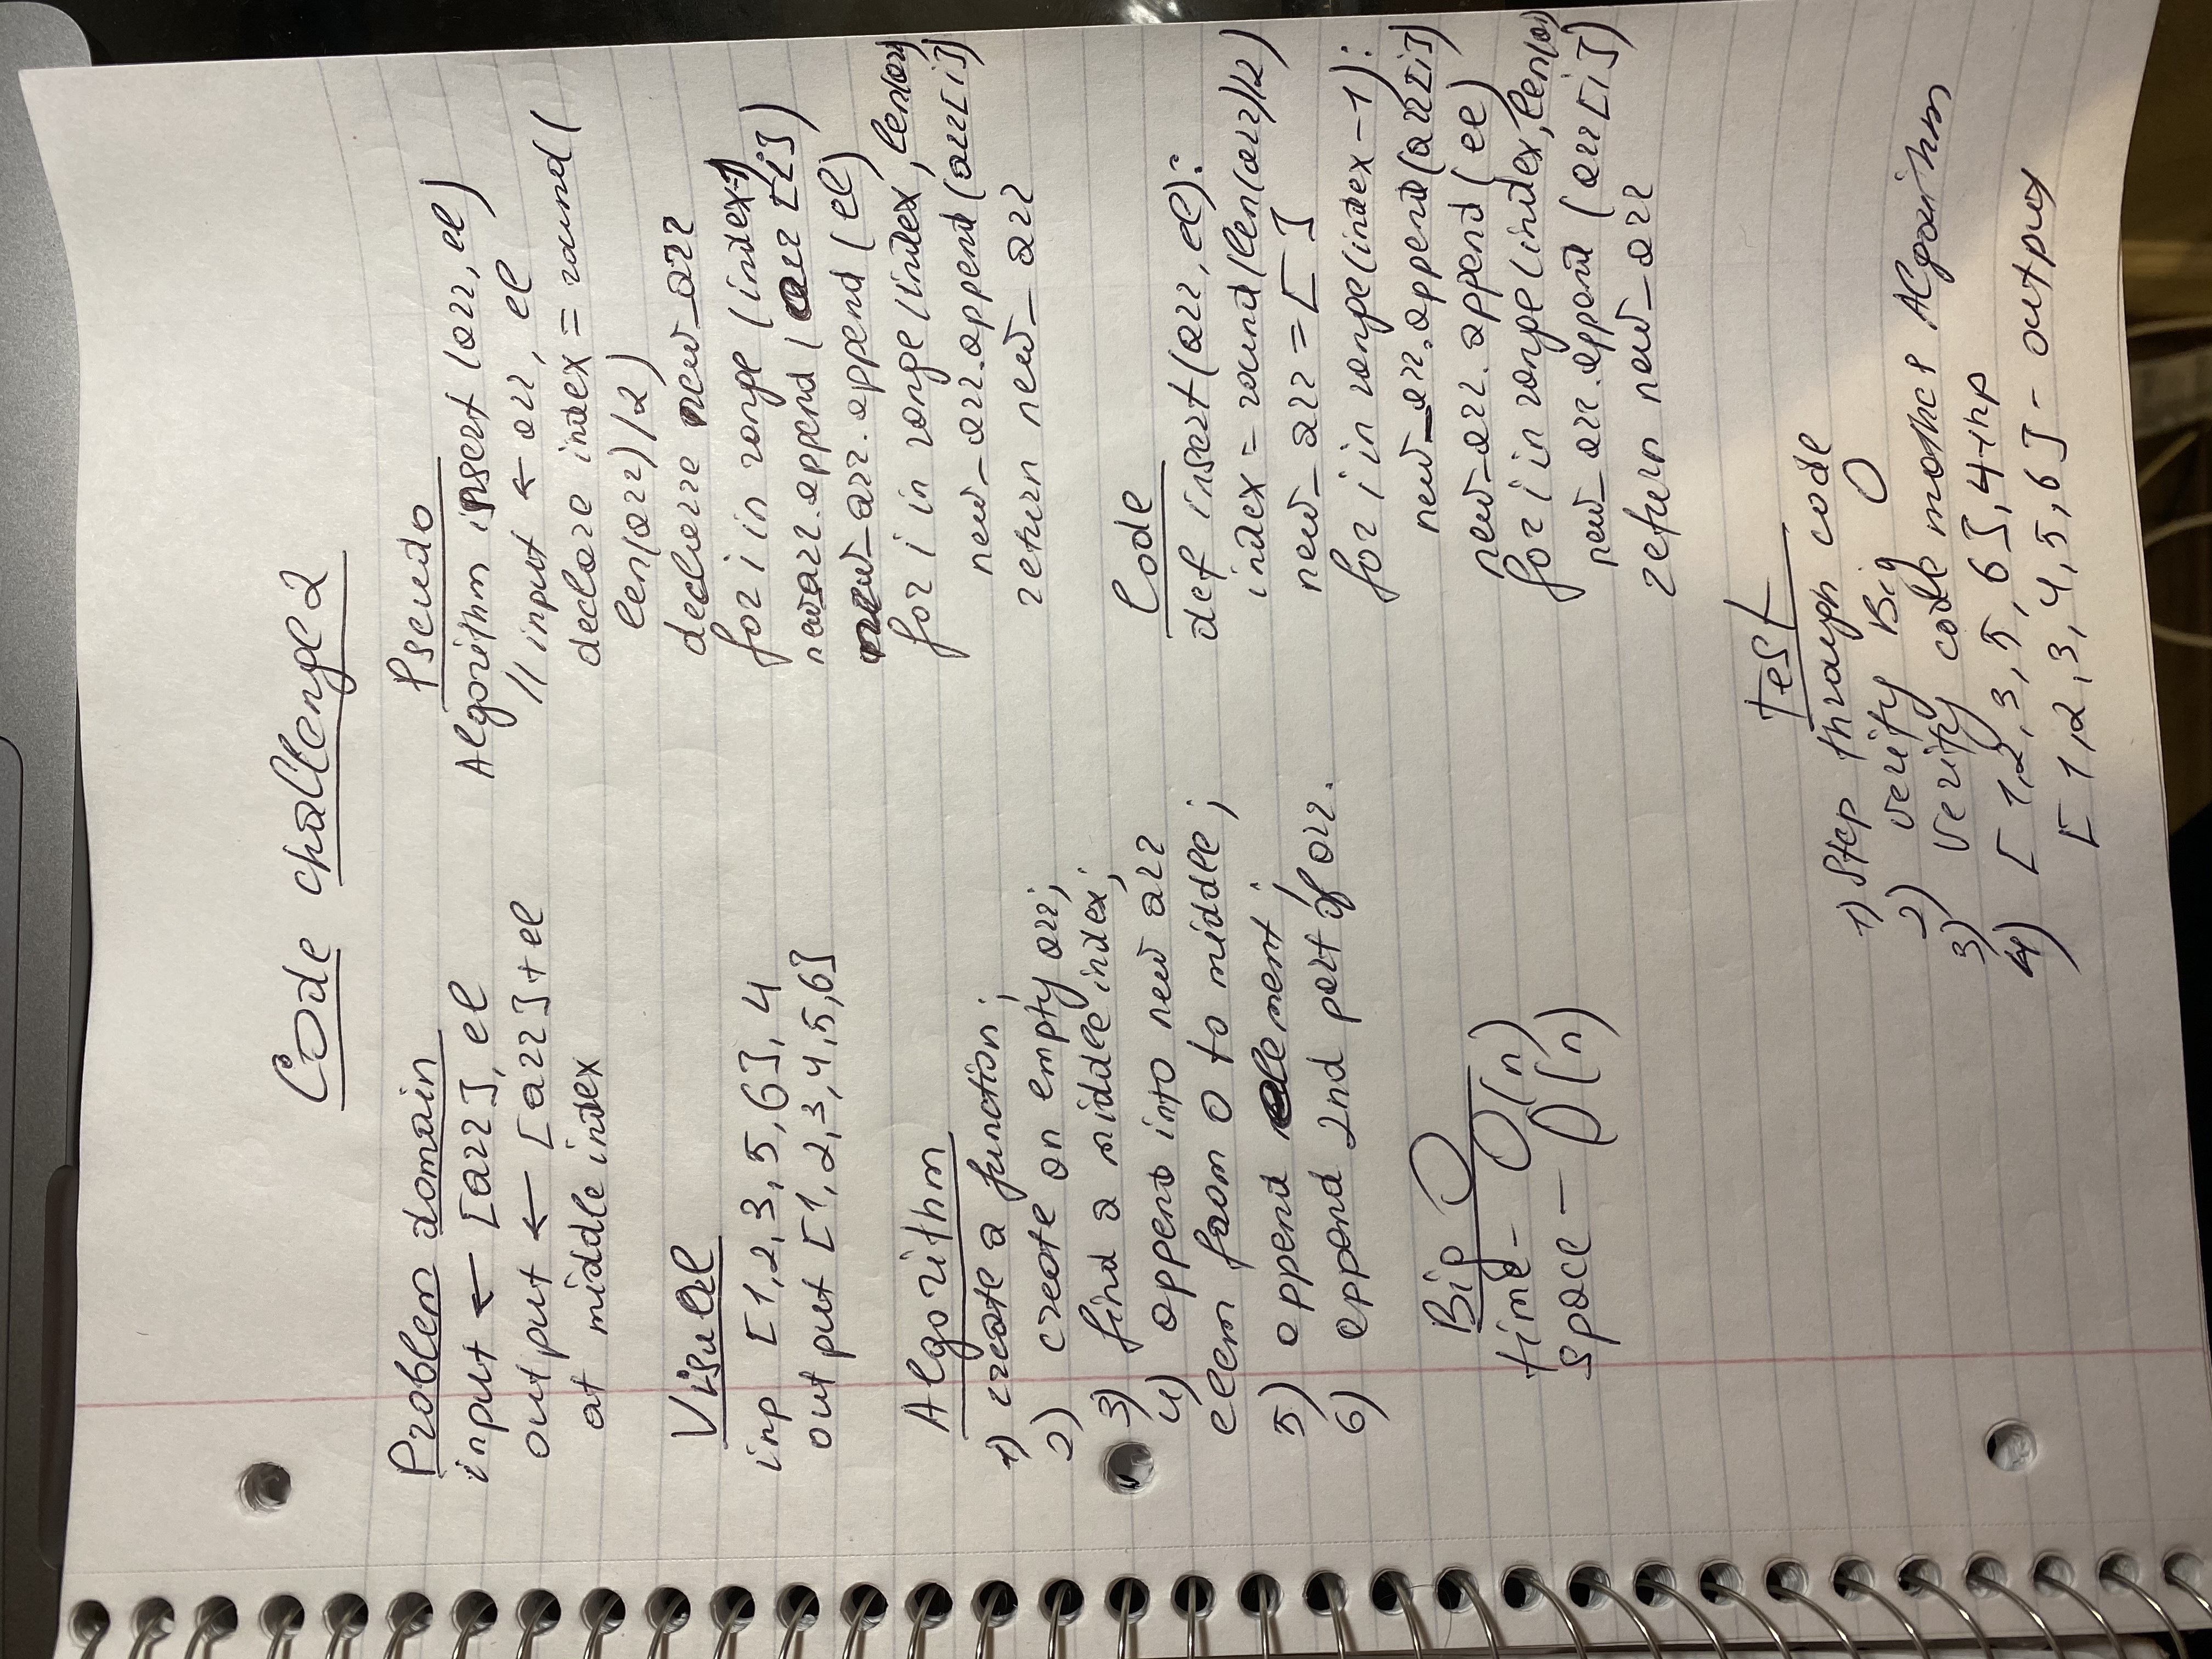 Code challenge 2
Problem domain
input ← [arr], el
output ← [arr] + el
at middle index
Visual
inp [1,2,3,5,6], 4
output [1,2,3,4,5,6]
Algorithm
1) create a function;
2) create an empty arr;
3) find a middle index;
4) append into new arr
elem from 0 to middle;
5) append element;
6) append 2nd part of arr.
Big O
time - O(n)
space - O(n)
Pseudo
Algorithm insert (arr, el)
// input ← arr, el
declare index = round (
len(arr)/2)
declarre new_arr
for i in range (index-1)
new_arr.append (arr[i])
new_arr.append (el)
for i in range (index, len(arr)
new_arr.append (arr[i])
return new_arr
Code
def insert(arr, el):
index = round(len(arr)/2)
new_arr = [ ]
for i in range(index-1):
new_arr.append(arr[i])
new_arr.append(el)
for i in range(index, len(ar)
new_arr.append (arr[i])
return new_arr
Test
1) Step through code
2) Verify Big O
3) Verify code mathes Algorithm
4) [1,2,3,5,6], 4-inp
[1,2,3,4,5,6] - output